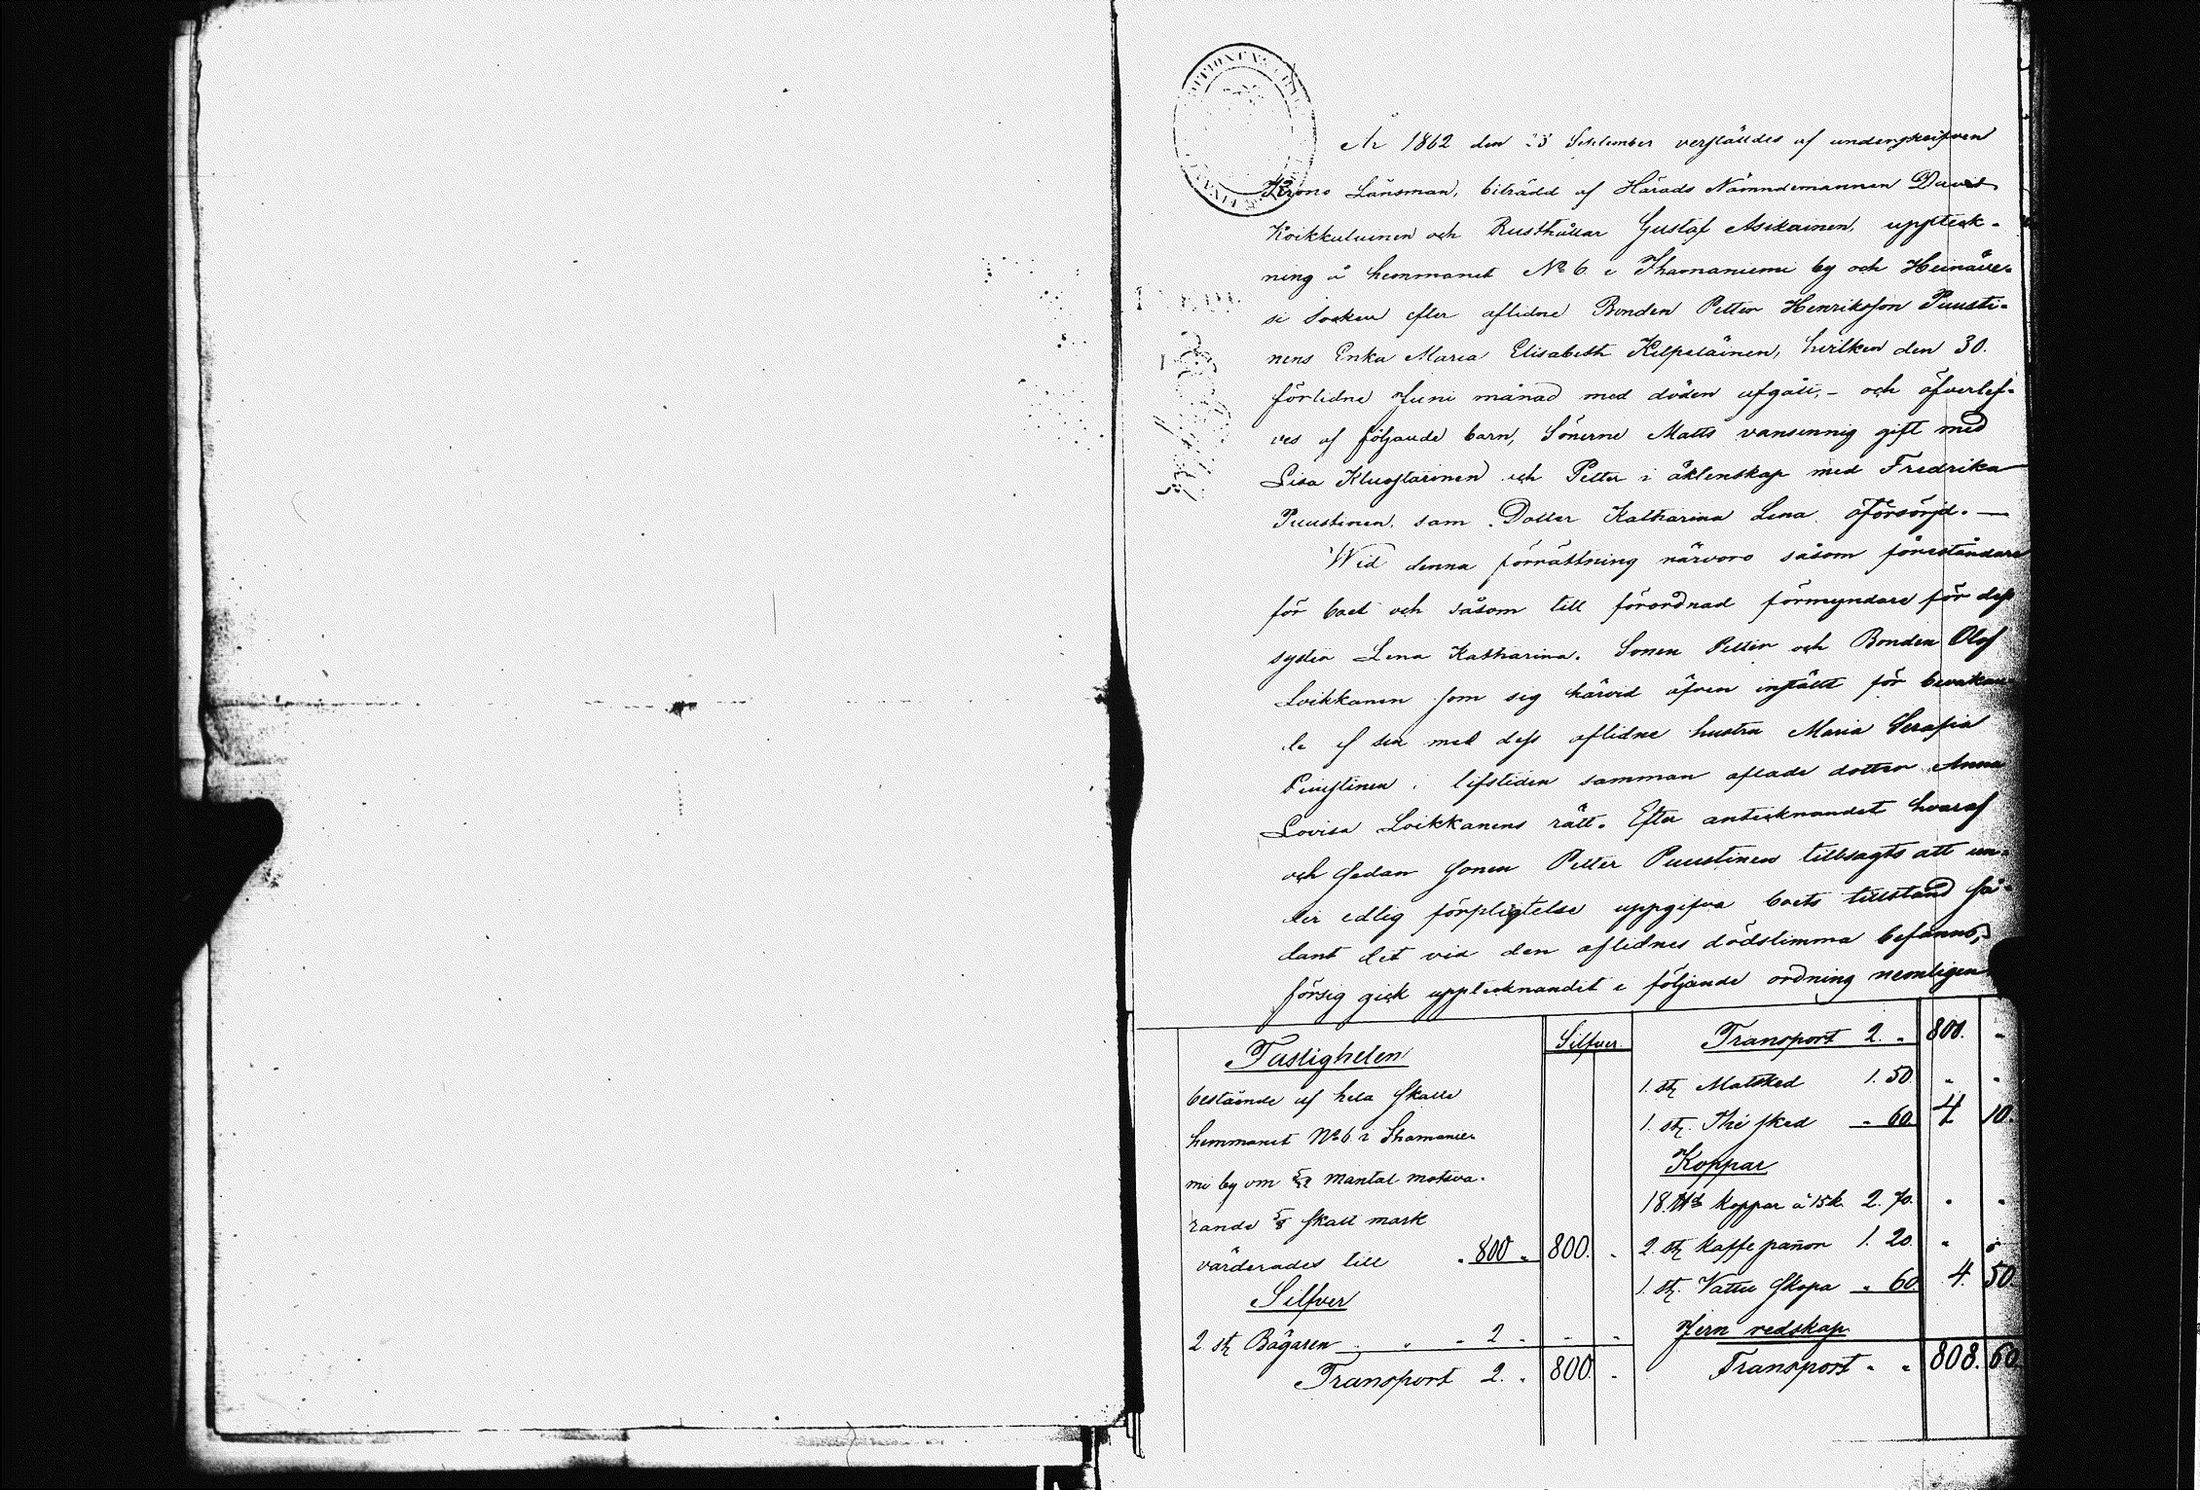 År 1862 den 23 September verställdes af undengskrifven
Krono Länsman, biträdd af Härads Nämndemannen David
Koikkuluinen och Rusthållar Gustaf Asikainen, uppteck-
ning å hemmanet No 6 i Ihamaniemi by och Heinäve-
si Socken efter aflidne Bonden Petter Henriksson Puusti-
nens Enka Maria Elisabeth Kilpeläinen, hvilken den 30.
förlidne Juni månad med döden afgått, - och öfverlef-
ves af följande barn, Sönerne Matts vansinnig gift med
Lisa och Petter i äktenskap med Fredrika
Puustinen, sam Dotter Katharina Lena oförsörjd. —
Wid denna förrättning närvoro såsom föreståndare
för boet och såsom till förordnad förmyndare för dess
syster Lena Katharina. Sonen Petter och Bonden Olof
Loikkanen som seg härvid äfven inställt för bevakan
de af sin med dess aflidne hustru Maria Serafia
Puustinen i lifstiden samman aflade dotter Anna
Lovisa Loikkanens rätt. Efter antecknandet hvaraf
och sedan sonen Petter Puustinen tillsagts att un-
der edlig förpligtelse uppgifva boets tillstånd så-
dant det vid den aflidnes dödstimma befanns,
försig gick upptecknandet i följande ordning nemligen
Fastigheten
Silfver.
bestående af hela skatte
hemmanet No 6 i Ihamanie-
mi by om mantal motsva-
rande 5/8 skatt mark
värderades till " 800 " 800. "
Silfver
2 st Bägaren " " 2 " " "
Transport 2. " 800. "
Transport 2. " 800. "
1. st Matsked 1. 50. " "
1. st. Thé sked " 60. 4 10.
Koppar
18. koppar à 15 k. 2. 70. " "
2. st kaffe pannor 1. 20. " "
1. st. Vattu skopa " 60. 4. 50.
Jern redskap
Transport " " 808. 60.